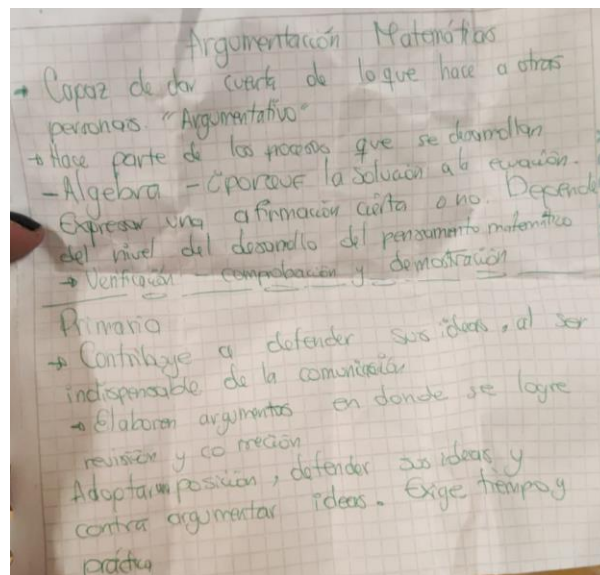 Argumentación Matemáticas
→ Capaz de dar cuenta de lo que hace a otras
personas. "Argumentativo"
→ Hace parte de los procesos que se desarrollan
- Algebra - ¿porque la solución a la ecuación.
Expresar una afirmación cierta o no. Depende
del nivel del desarrollo del pensamiento matemático
→ Verificación - comprobación y demostración
Primaria
→ Contribuye a defender sus ideas, al ser
indispensable de la comunicación
→ Elaboren argumentos en donde se logre
revisión y correción
Adoptar posición, defender sus ideas y
contra argumentar ideas. Exige tiempo y
práctica